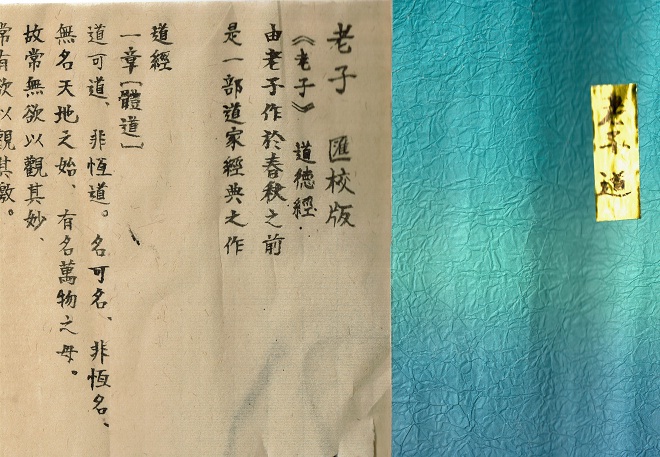 老子道
老子 匯校版
《老子》道德經.
由老子作於春秋之前
是一部道家經典之作
道經
一章[體道]
道可道、非恆道。名可名、非恆名、
無名天地之始、有名萬物之母。
故常無欲以觀其妙、
常有欲以觀其徼。